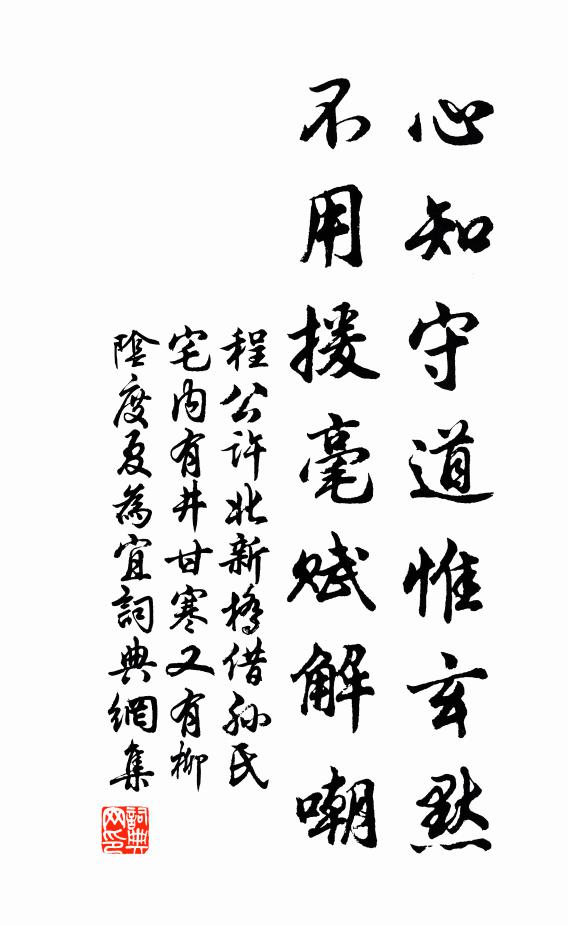 心知守道惟玄默
不用援毫赋解嘲
程公許北新橋借孙氏
宅内有井甘寒又有柳
陰度夏為宜詞典網集
詞典网印